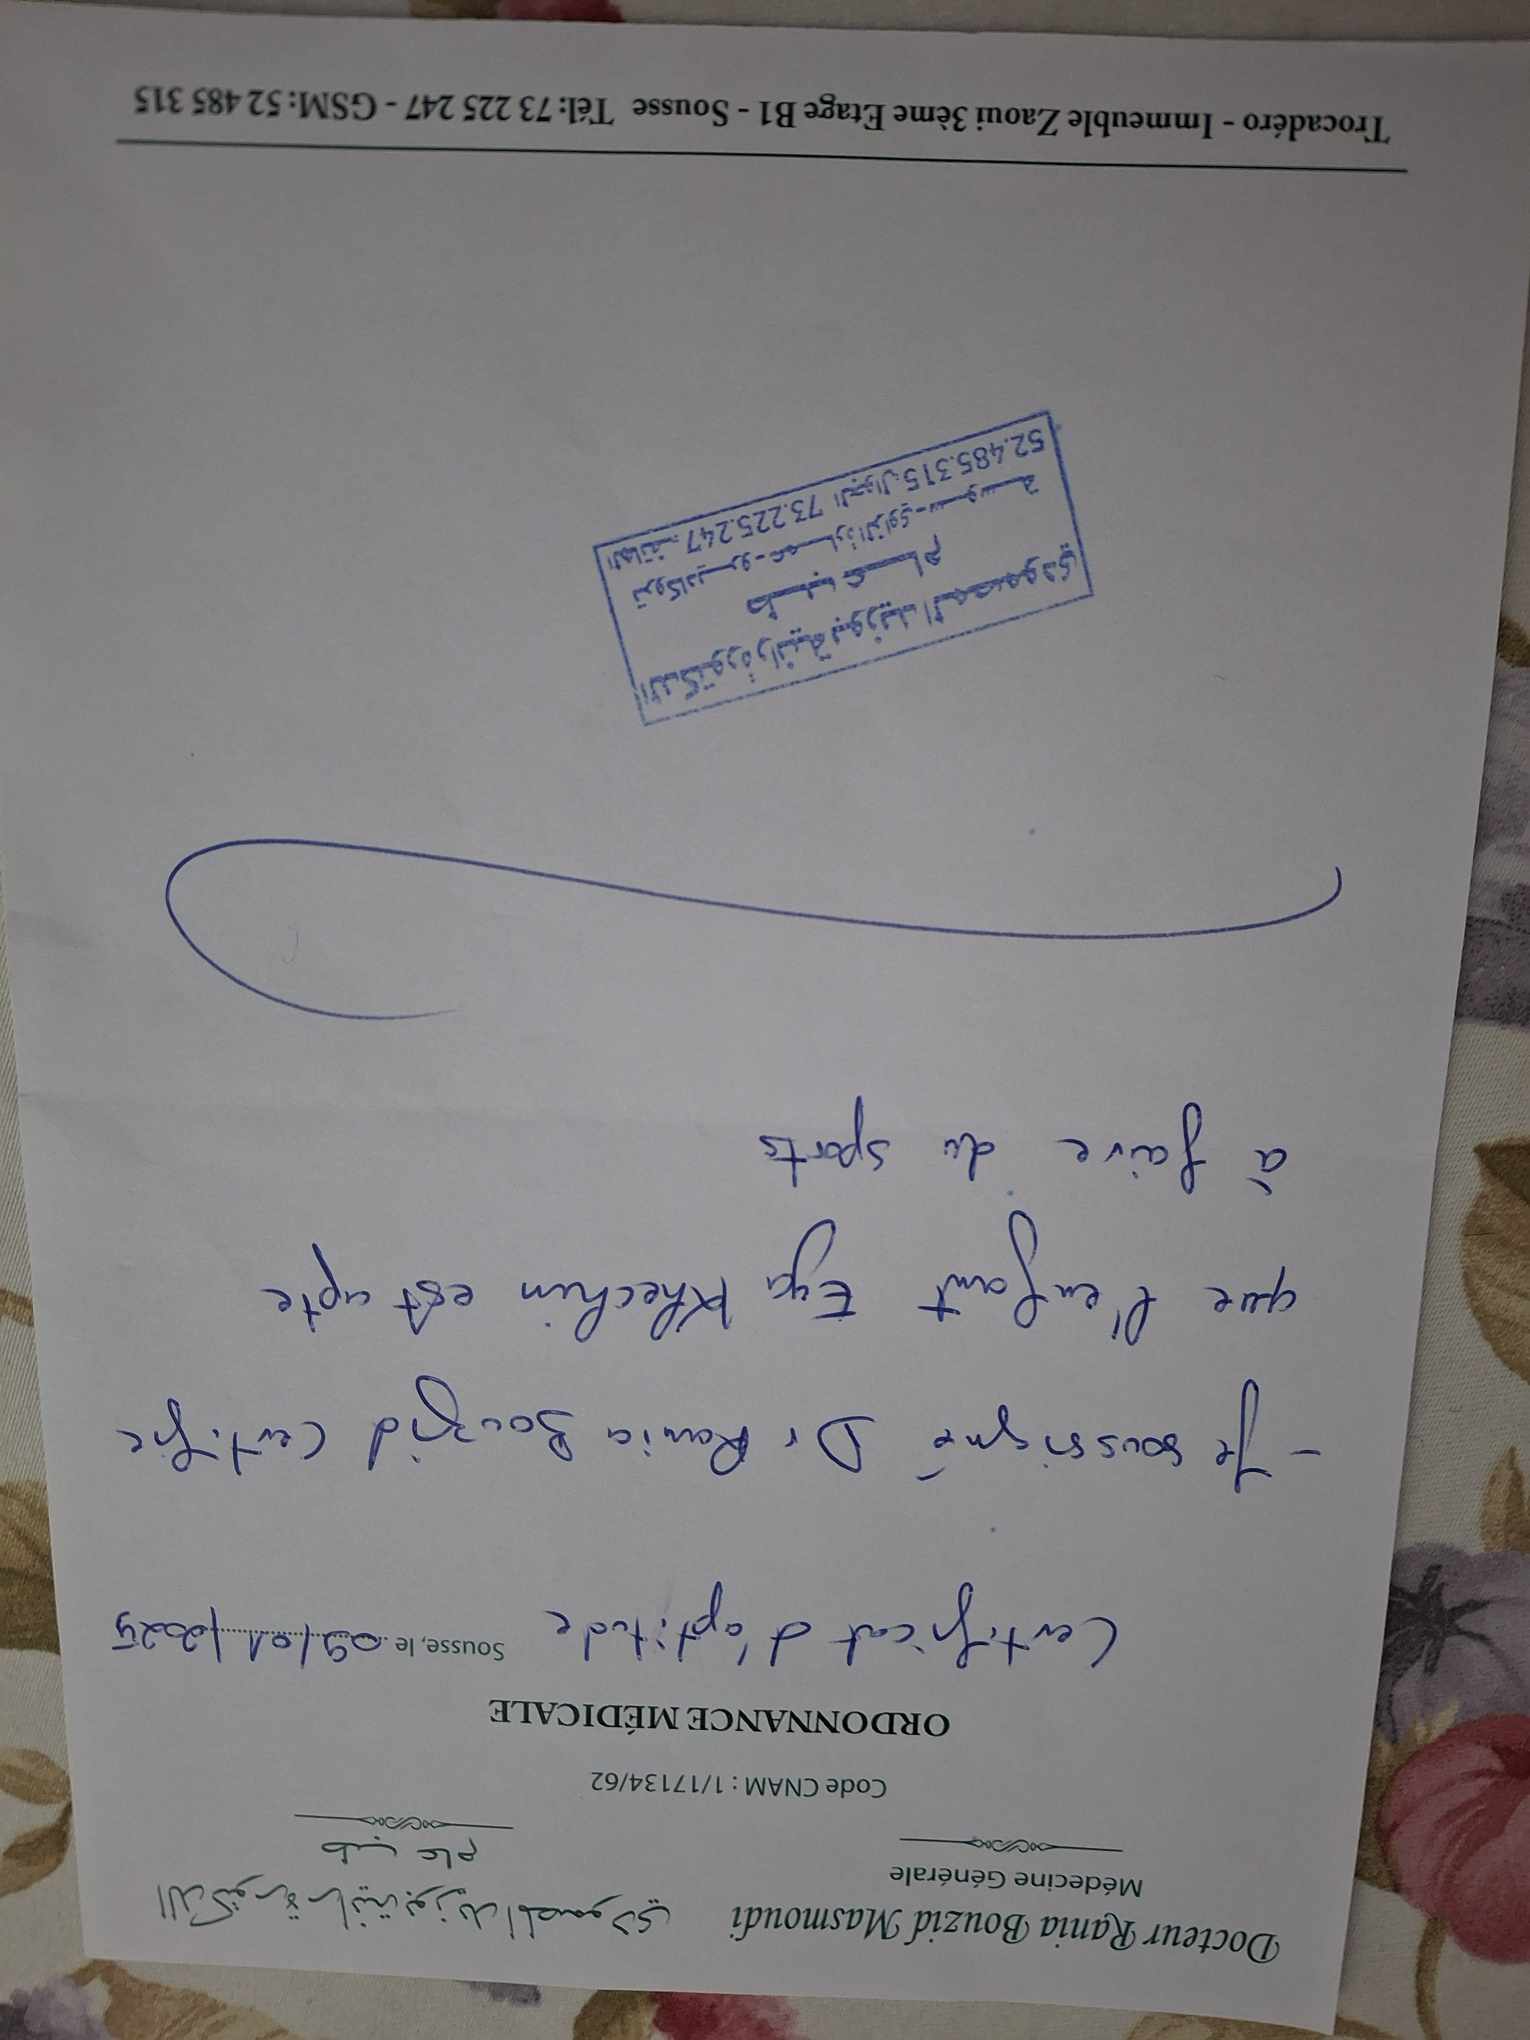 Docteur Rania Bouzid Masmoudi
الدكتورة رانية بوزيد المصمودي
Médecine Générale
طب عام
Code CNAM : 1/17134/62
ORDONNANCE MÉDICALE
Sousse, le 09/01/2025
Certificat d'aptitude
- Je soussigné Dr Rania Bouzid Certifie
que l'enfant Eya Khechin est apte
à faire du sports
الدكتورة رانية بوزيد المصمودي
طب عام
تروكاديرو - عمارة الزاوي - سوسة
الهاتف 73.225.247 الجوال 52.485.315
Trocadéro - Immeuble Zaoui 3ème Etage B1 - Sousse Tél: 73 225 247 - GSM: 52 485 315